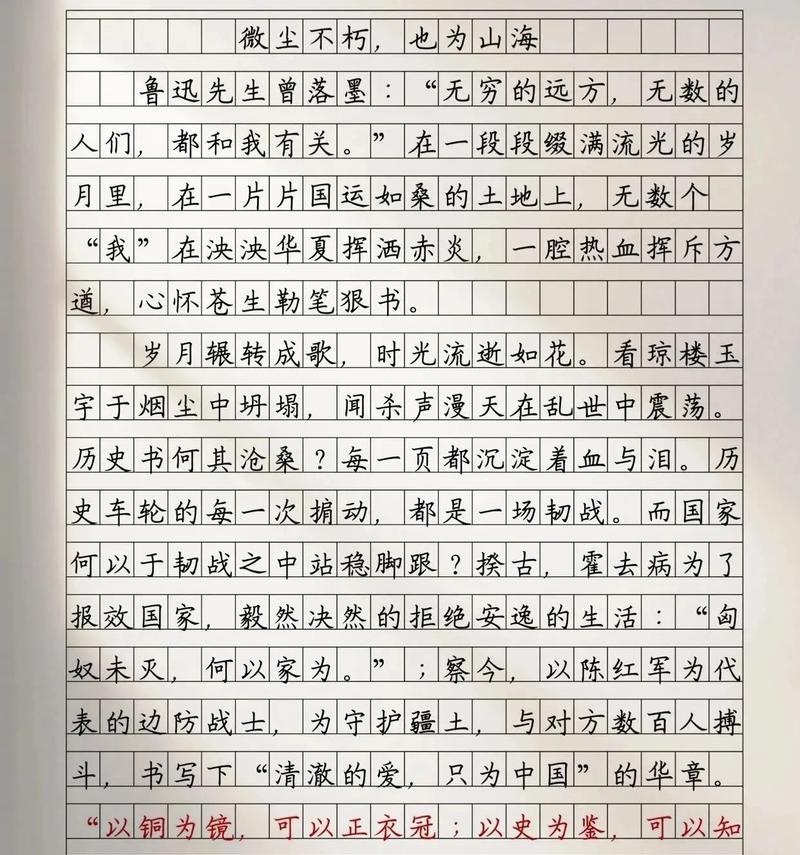 微尘不朽，也为山海
鲁迅先生曾落墨：“无穷的远方，无数的
人们，都和我有关。”在一段段缀满流光的岁
月里，在一片片国运如桑的土地上，无数个
“我”在泱泱华夏挥洒赤炎，一腔热血挥斥方
遒，心怀苍生勒笔狠书。
岁月辗转成歌，时光流逝如花。看琼楼玉
宇于烟尘中坍塌，闻杀声漫天在乱世中震荡。
历史书何其沧桑？每一页都沉淀着血与泪。历
史车轮的每一次掮动，都是一场韧战。而国家
何以于韧战之中站稳脚跟？揆古，霍去病为了
报效国家，毅然决然的拒绝安逸的生活：“匈
奴未灭，何以家为。”；察今，以陈红军为代
表的边防战士，为守护疆土，与对方数百人搏
斗，书写下“清澈的爱，只为中国”的华章。
“以铜为镜，可以正衣冠；以史为鉴，可以知